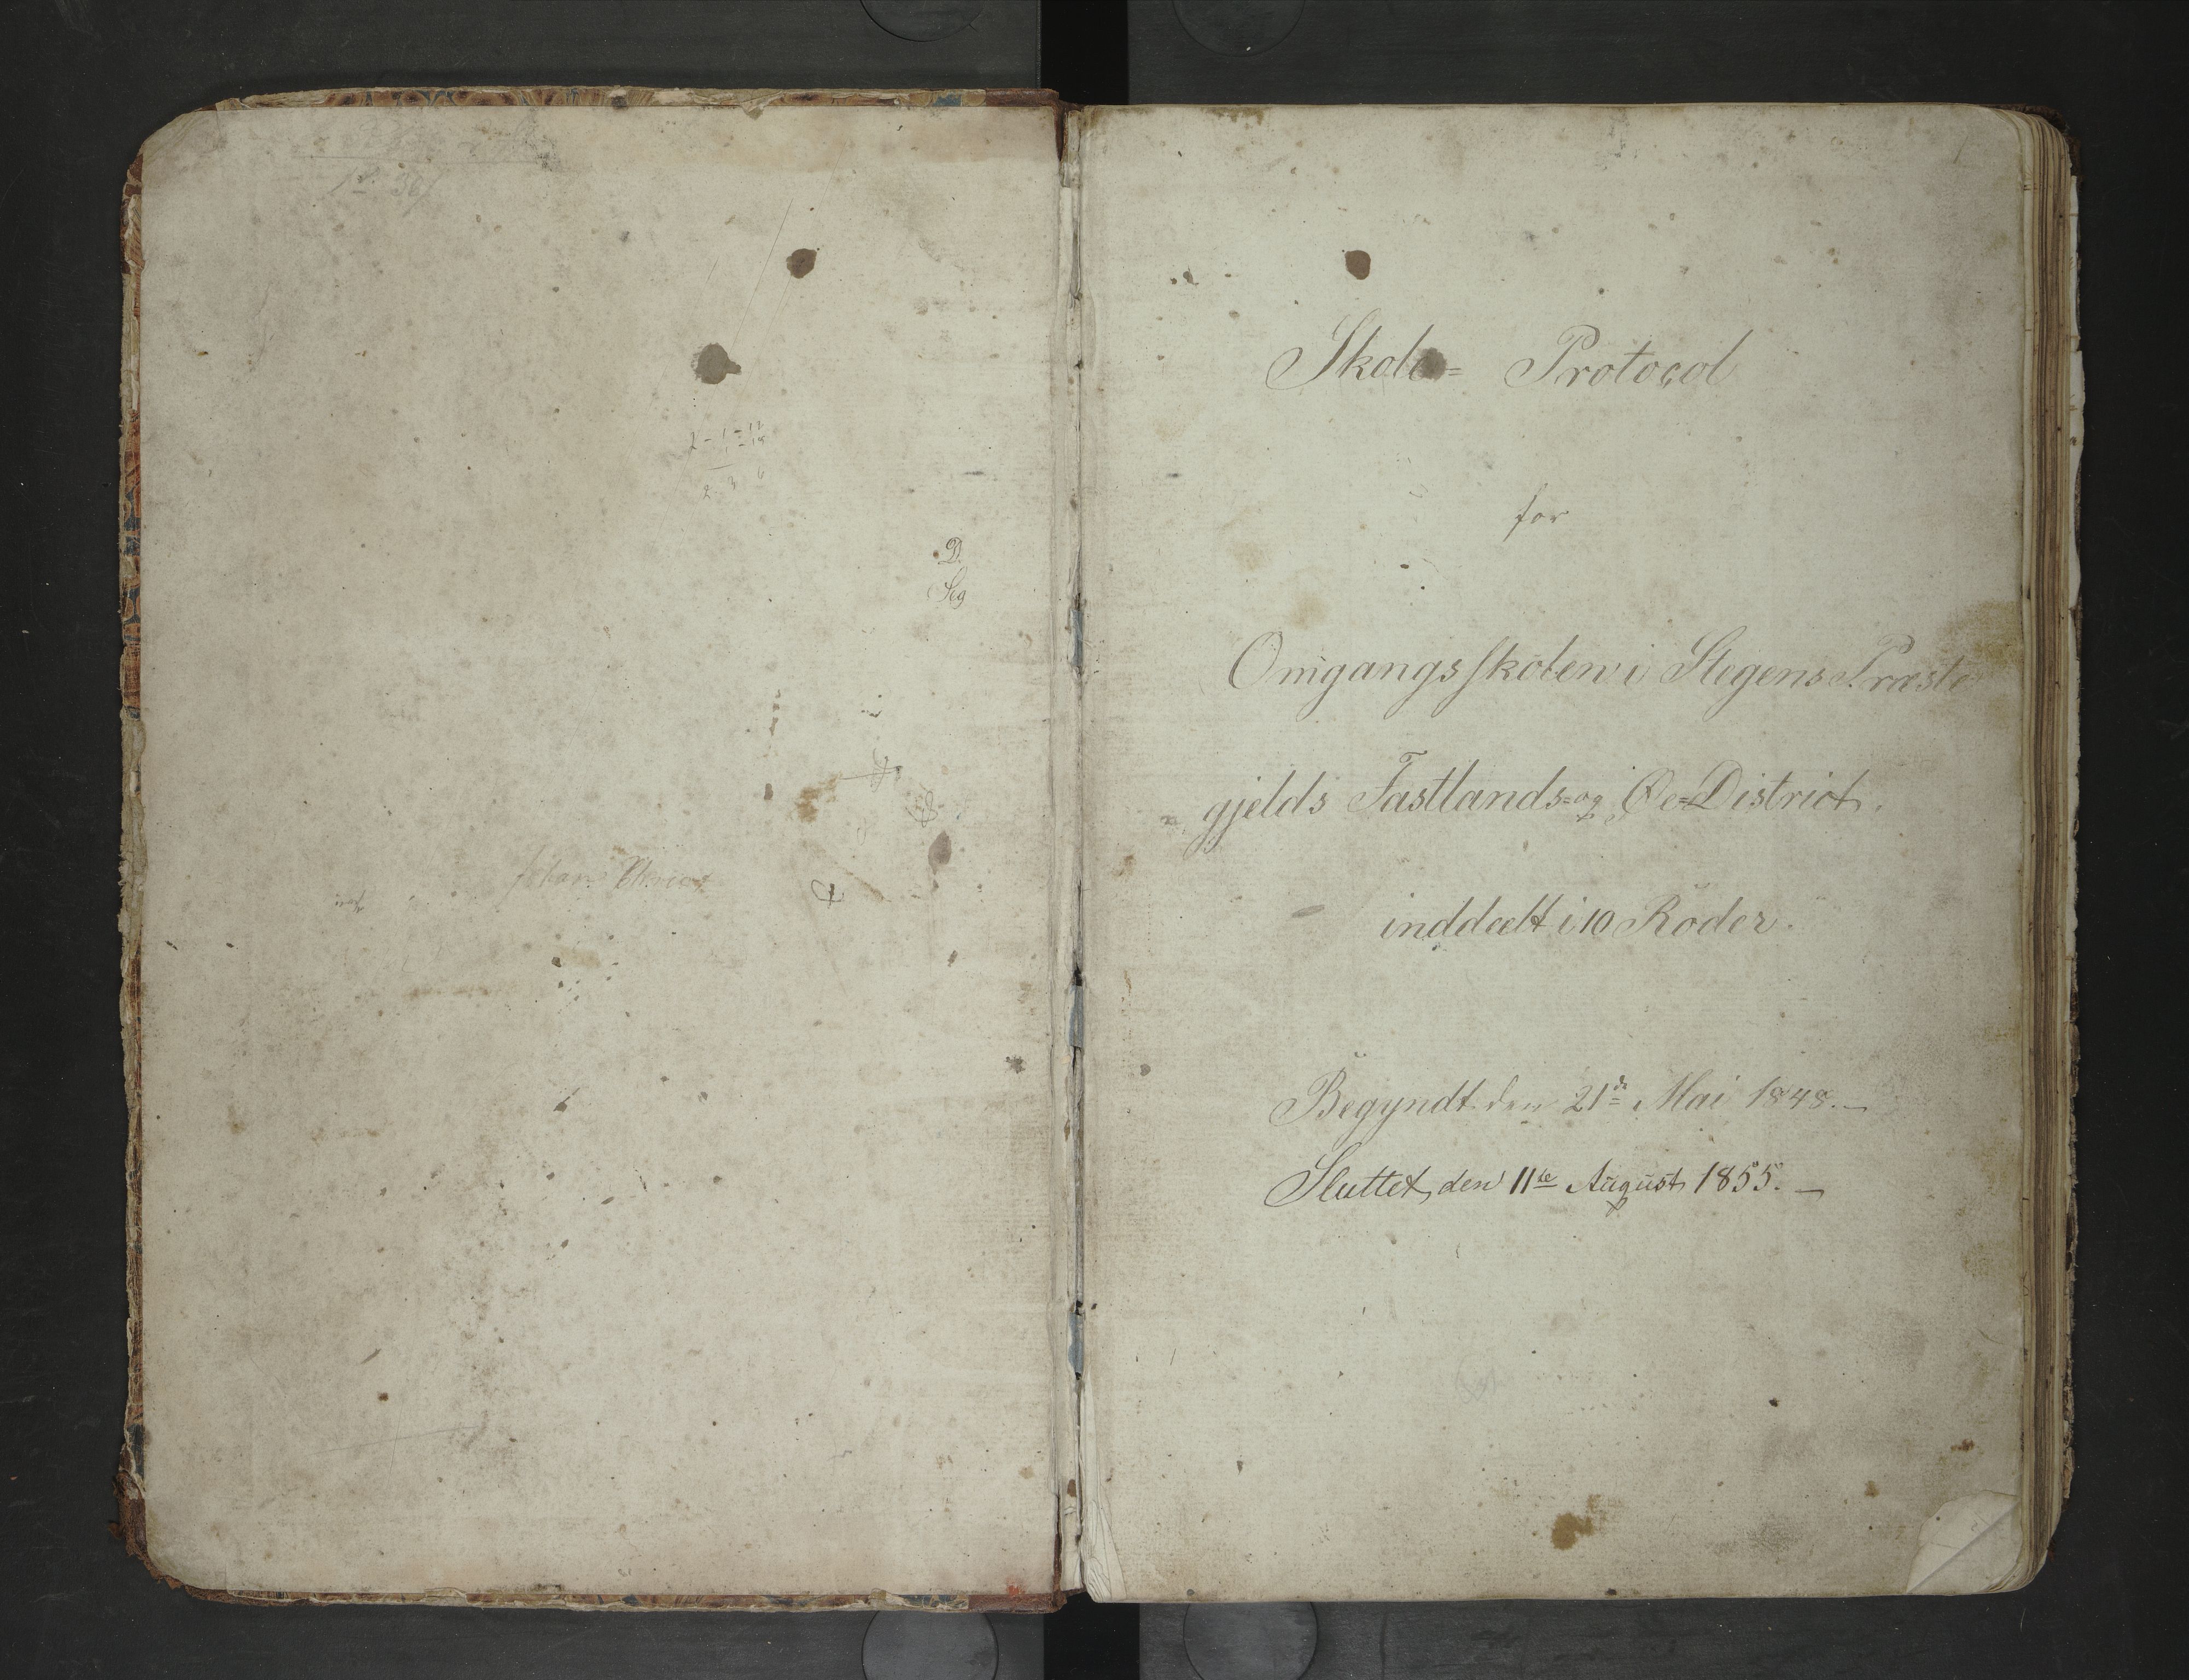 2 - 1 - 11
2 3 6
D.
Seg
Skole= Protocol
for
Omgangsskolen i Stegens Præste
gjelds Fastlands= og Øe=District.
inddeelt i 10 Röder.
Begyndt den 21de Mai 1848. —
Sluttet den 11te August 1855. —